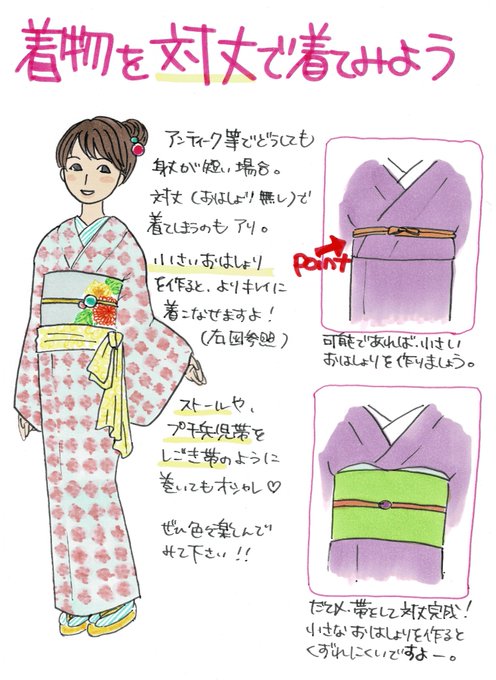 着物を対丈で着てみよう
アンティーク等でどうしても
身丈が短い場合。
対丈(おはしょり無し)で
着てしまうのもアリ。
小さいおはしょり
を作ると、よりキレイに
着こなせますよ!
(右図参照)
ストールや、
プチ兵児帯を
しごき帯のように
巻いてもオシャレ♡
ぜひ色々楽しんで
みて下さい!!
Point
可能であれば、小さい
おはしょりを作りましょう。
だて〆、帯をして対丈完成!
小さなおはしょりを作ると
くずれにくいですよー。